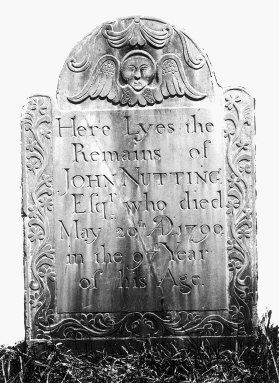 Here Lyes the
Remains of
JOHN NUTTING
Esqr. who died
May 20th A.D. 1790.
in the 97 Year
of his Age.